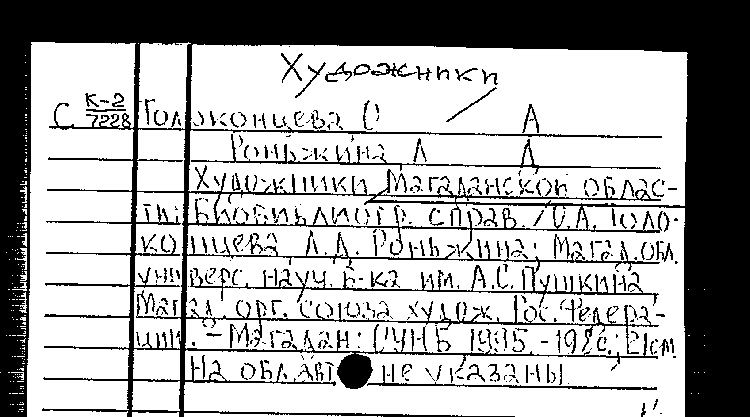 Художники
С К-2/7228 Голоконцева О А
Роньжина Л Д
Художники Магаданской облас-
ти: Биобиблиогр. справ. / О.А. Голо-
концева, Л.Д. Роньжина; Магад. обл.
универс. науч. б-ка им. А.С. Пушкина,
Магад. орг. союза худож. Рос. Федера-
ции. - Магадан: ОУНБ, 1995. - с.; 21см.
На обл. авт. не указаны